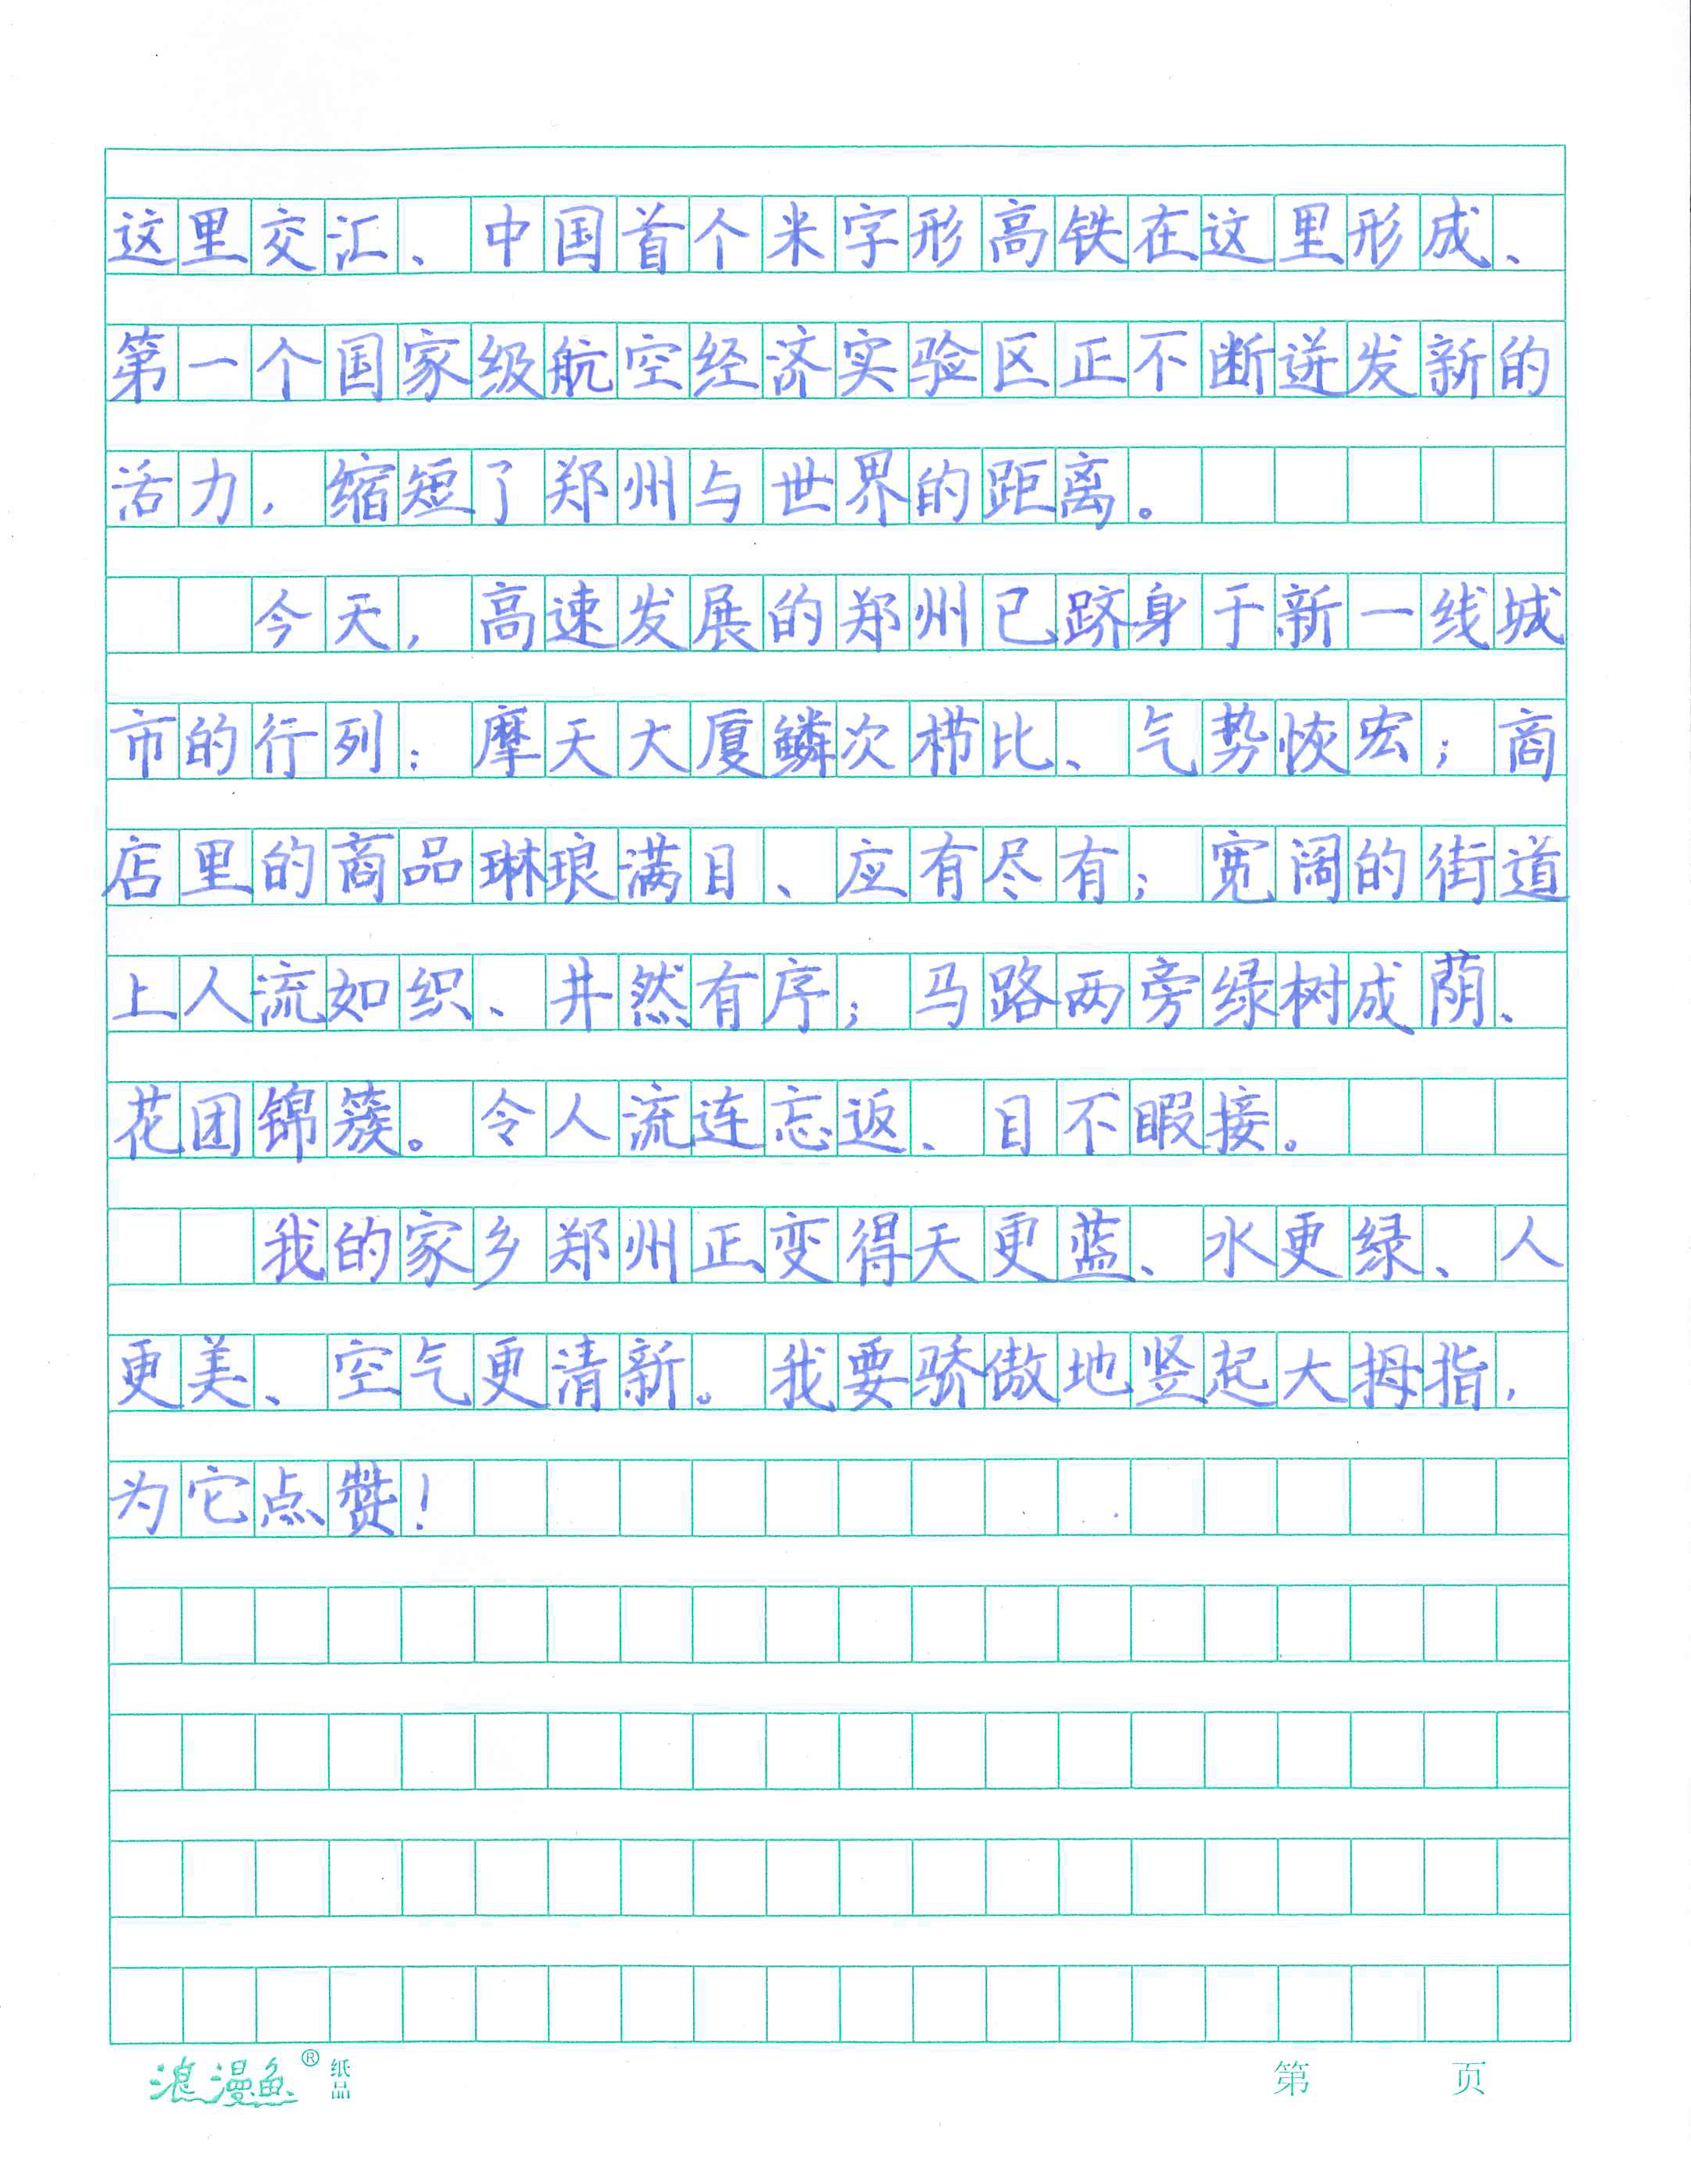 这里交汇、中国首个米字形高铁在这里形成、
第一个国家级航空经济实验区正不断迸发新的
活力，缩短了郑州与世界的距离。
今天，高速发展的郑州已跻身于新一线城
市的行列：摩天大厦鳞次栉比、气势恢宏；商
店里的商品琳琅满目、应有尽有；宽阔的街道
上人流如织、井然有序；马路两旁绿树成荫、
花团锦簇。令人流连忘返、目不暇接。
我的家乡郑州正变得天更蓝、水更绿、人
更美、空气更清新。我要骄傲地竖起大拇指，
为它点赞！
浪漫鱼® 纸品 第 页